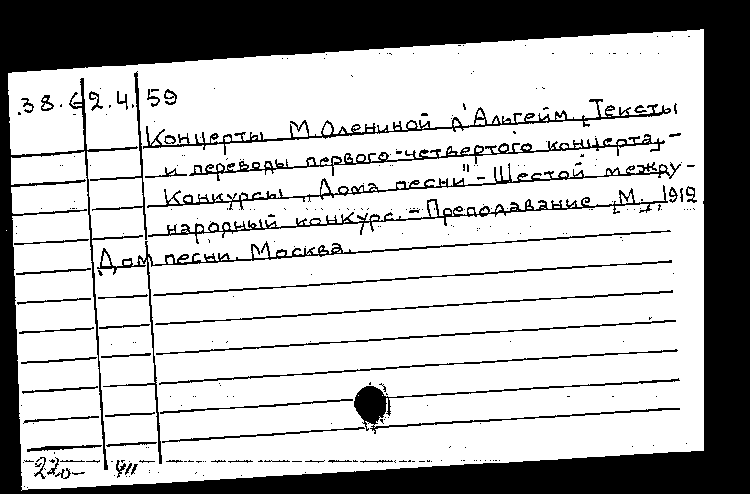 38.62.4.59
Концерты М.Олениной д'Альгейм „Тексты
и переводы первого-четвертого концерта,-
Конкурсы „Дома песни"-Шестой между-
народный конкурс.-Преподавание М., 1912
Дом песни. Москва.
220-